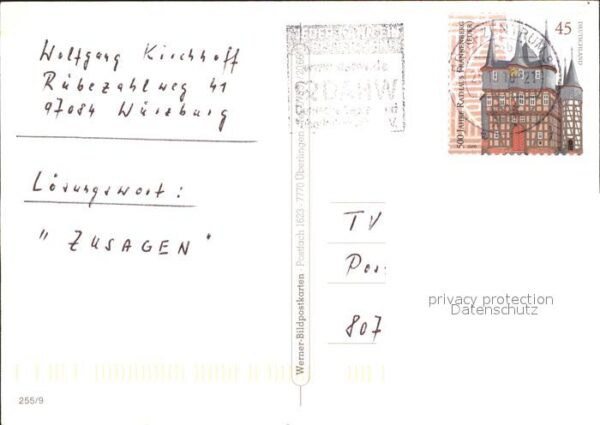 Wolfgang Kirchhoff
Rübezahlweg 41
97084 Würzburg
Lösungswort:
"ZUSAGEN"
255/9
Werner-Bildpostkarten Postfach 1623 - 7770 Überlingen
45
DEUTSCHLAND
500 JAHRE RATHAUS FRANKENBERG (EDER)
TV
Pos
807
privacy protection
Datenschutz